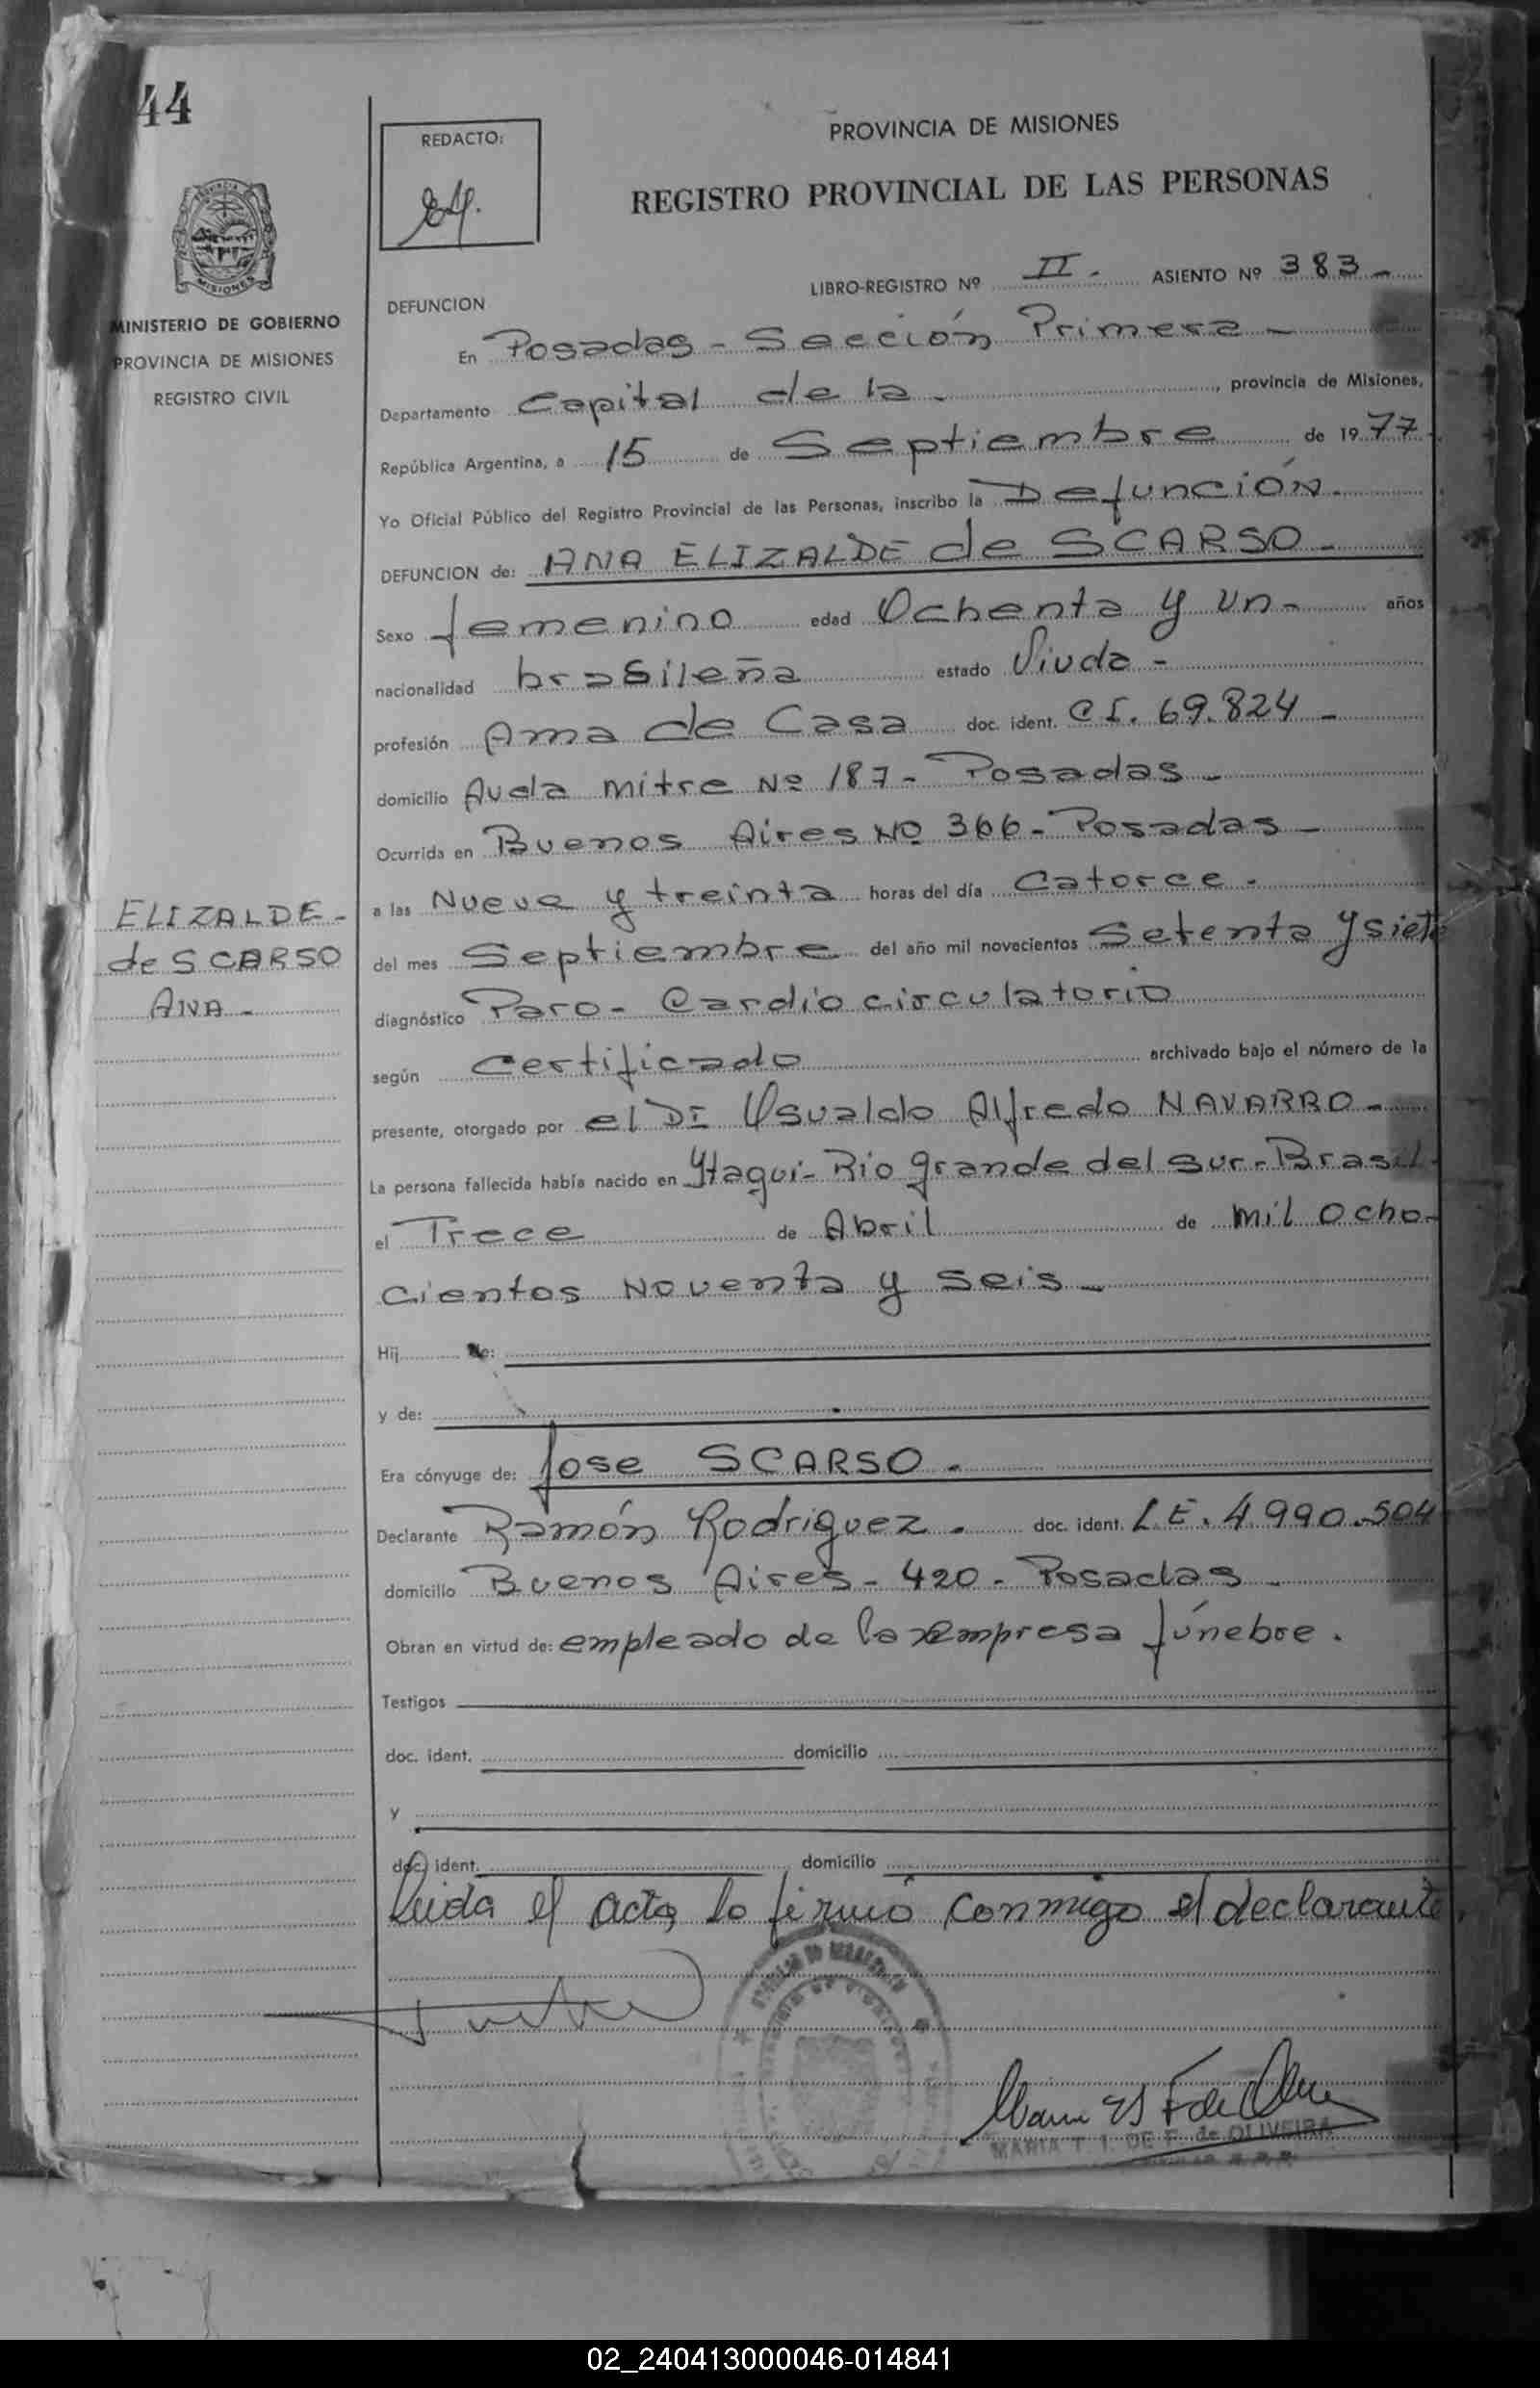 44
REDACTO:
PROVINCIA DE MISIONES
REGISTRO PROVINCIAL DE LAS PERSONAS
MISIONES
MINISTERIO DE GOBIERNO
PROVINCIA DE MISIONES
REGISTRO CIVIL
LIBRO-REGISTRO Nº II - ASIENTO Nº 383 -
DEFUNCION
En Posadas - Sección Primera -
Departamento Capital de la - , provincia de Misiones,
República Argentina, a 15 de Septiembre de 1977.
Yo Oficial Público del Registro Provincial de las Personas, inscribo la Defunción.
DEFUNCION de: ANA ELIZALDE de SCARSO -
Sexo femenino edad Ochenta y un - años
nacionalidad brasileña estado Viuda -
profesión Ama de Casa doc. ident. C I. 69.824 -
domicilio Avda mitre Nº 187 - Posadas -
Ocurrida en Buenos Aires Nº 366 - Posadas -
a las Nueve y treinta horas del día Catorce -
del mes Septiembre del año mil novecientos Setenta y siete
diagnóstico Paro - Cardio circulatorio
según Certificado archivado bajo el número de la
presente, otorgado por el Dr Osvaldo Alfredo NAVARRO -
La persona fallecida había nacido en Ytaqui - Rio grande del sur - Brasil -
el Trece de Abril de mil ocho-
cientos Noventa y seis -
Hij de:
y de:
Era cónyuge de: Jose SCARSO -
Declarante Ramón Rodriguez - doc. ident. L.E. 4.990.504
domicilio Buenos Aires - 420 - Posadas -
Obran en virtud de: empleado de la empresa fúnebre.
Testigos
doc. ident. domicilio
y
doc. ident. domicilio
Leida el acta, lo firmó conmigo el declarante.
MARIA T. I. DE F. de OLIVEIRA
ELIZALDE -
de SCARSO
ANA -
02_240413000046-014841